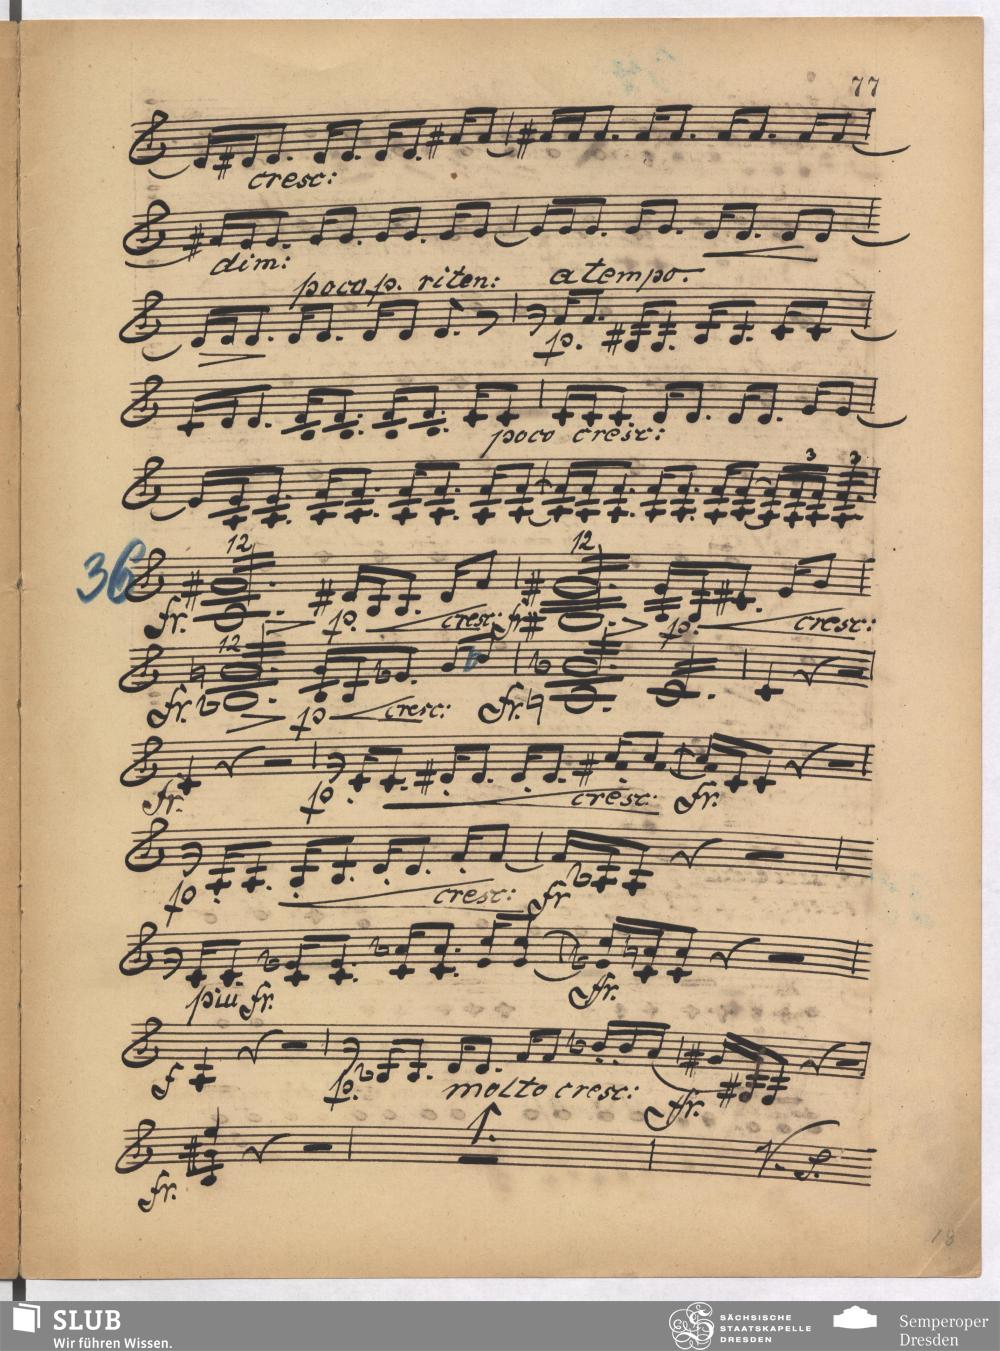 77
cresc:
dim:
poco p. riten: a tempo.
p.
poco cresc:
3 3
36
12 12
fr. p. cresc: fr p. cresc:
12
fr. p cresc: fr.
fr. p. cresc: fr.
p cresc: fr
più fr. fr.
f p. molto cresc: ffr.
1.
fr. V. S.
18
SLUB
Wir führen Wissen.
SÄCHSISCHE
STAATSKAPELLE
DRESDEN
Semperoper
Dresden